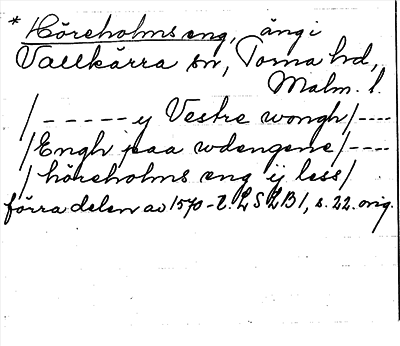 * Höreholms eng, äng i
Vallkärra sn, Torna hd,
Malm. l.
/ - - - - - y Vestre wongh/----
/Engh paa wdengene/----
/ höreholms eng ij less/
förra delen av 1570-t. LSLB1, s. 22. orig.